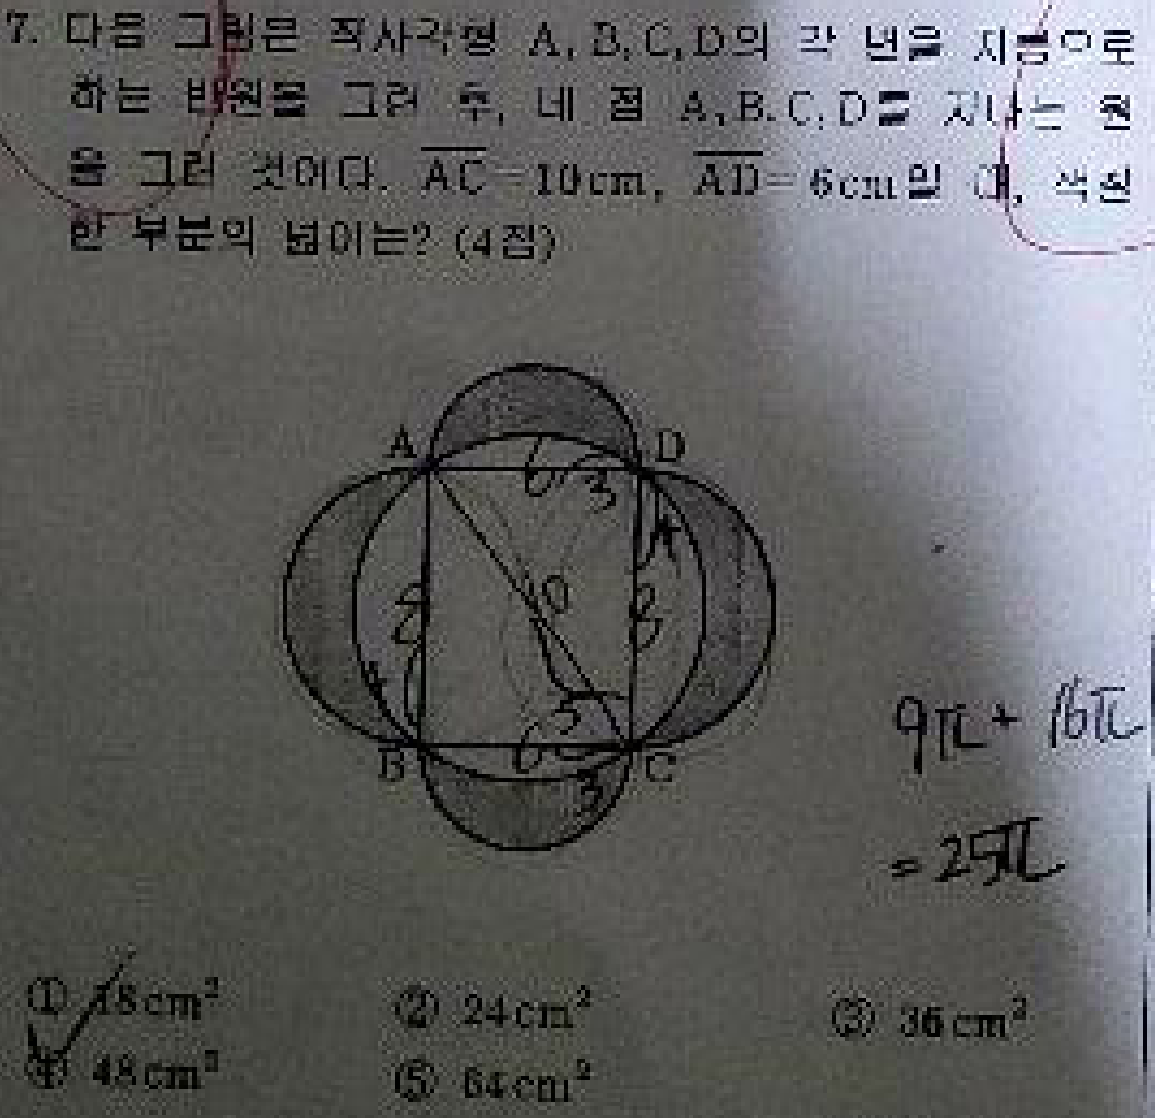 7. 다음 그림은 직사각형 A, B, C, D의 각 변을 지름으로
하는 반원을 그린 후, 네 점 A, B, C, D를 지나는 원
을 그린 것이다. AC=10cm, AD=6cm일 때, 색칠
한 부분의 넓이는? (4점)
A 6 D
3
4
10
8 8
4
5
B 6 C
3
9π + 16π
= 25π
① 18cm² ② 24cm² ③ 36cm²
④ 48cm² ⑤ 64cm²